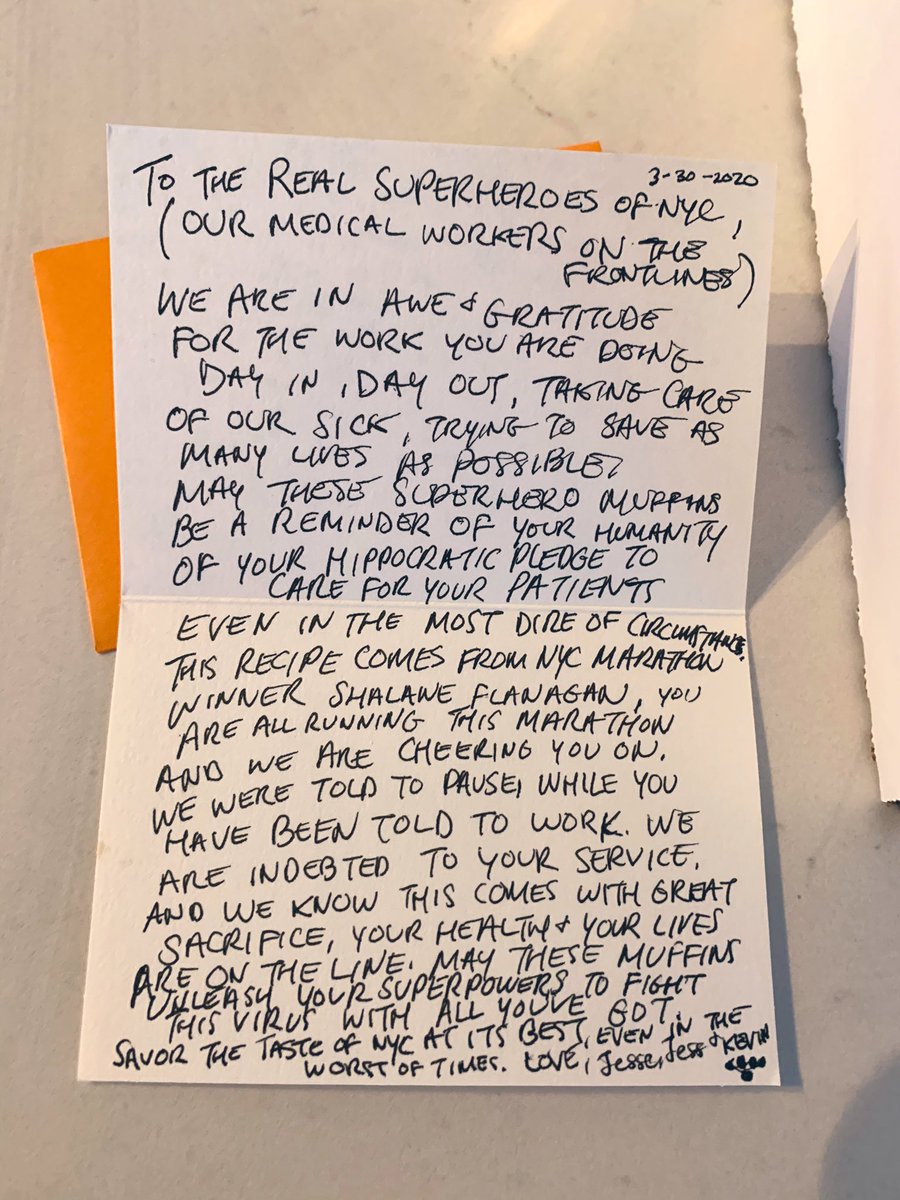 3-30-2020
TO THE REAL SUPERHEROES OF NYC,
(OUR MEDICAL WORKERS ON THE
FRONTLINES)
WE ARE IN AWE & GRATITUDE
FOR THE WORK YOU ARE DOING
DAY IN, DAY OUT, TAKING CARE
OF OUR SICK, TRYING TO SAVE AS
MANY LIVES AS POSSIBLE,
MAY THESE SUPERHERO MUFFINS
BE A REMINDER OF YOUR HUMANITY
OF YOUR HIPPOCRATIC PLEDGE TO
CARE FOR YOUR PATIENTS
EVEN IN THE MOST DIRE OF CIRCUMSTANCE.
THIS RECIPE COMES FROM NYC MARATHON
WINNER SHALANE FLANAGAN, YOU
ARE ALL RUNNING THIS MARATHON
AND WE ARE CHEERING YOU ON.
WE WERE TOLD TO PAUSE, WHILE YOU
HAVE BEEN TOLD TO WORK. WE
ARE INDEBTED TO YOUR SERVICE.
AND WE KNOW THIS COMES WITH GREAT
SACRIFICE, YOUR HEALTH & YOUR LIVES
ARE ON THE LINE. MAY THESE MUFFINS
UNLEASH YOUR SUPERPOWERS TO FIGHT
THIS VIRUS WITH ALL YOU'VE GOT.
SAVOR THE TASTE OF NYC AT ITS BEST, EVEN IN THE
WORST OF TIMES. LOVE, Jesse, Jess & KEVIN